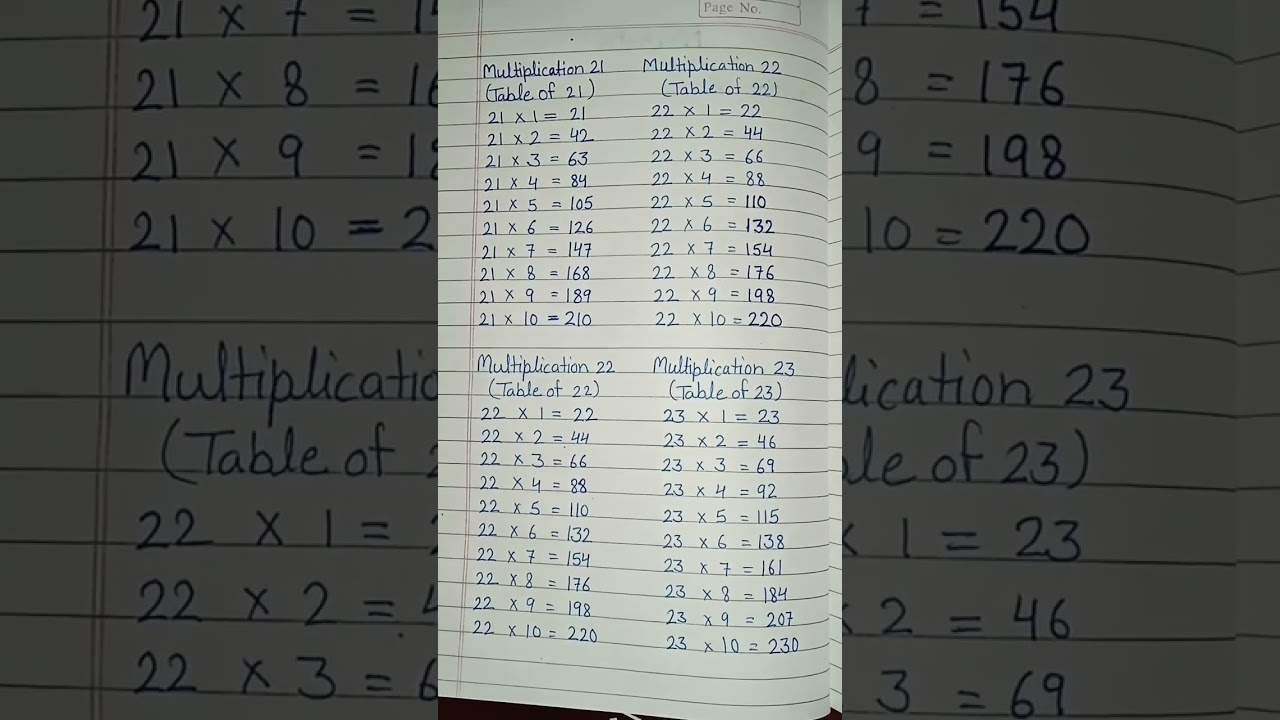 Page No.
Multiplication 21
(Table of 21)
21 x 1 = 21
21 x 2 = 42
21 x 3 = 63
21 x 4 = 84
21 x 5 = 105
21 x 6 = 126
21 x 7 = 147
21 x 8 = 168
21 x 9 = 189
21 x 10 = 210
Multiplication 22
(Table of 22)
22 x 1 = 22
22 x 2 = 44
22 x 3 = 66
22 x 4 = 88
22 x 5 = 110
22 x 6 = 132
22 x 7 = 154
22 x 8 = 176
22 x 9 = 198
22 x 10 = 220
Multiplication 22
(Table of 22)
22 x 1 = 22
22 x 2 = 44
22 x 3 = 66
22 x 4 = 88
22 x 5 = 110
22 x 6 = 132
22 x 7 = 154
22 x 8 = 176
22 x 9 = 198
22 x 10 = 220
Multiplication 23
(Table of 23)
23 x 1 = 23
23 x 2 = 46
23 x 3 = 69
23 x 4 = 92
23 x 5 = 115
23 x 6 = 138
23 x 7 = 161
23 x 8 = 184
23 x 9 = 207
23 x 10 = 230